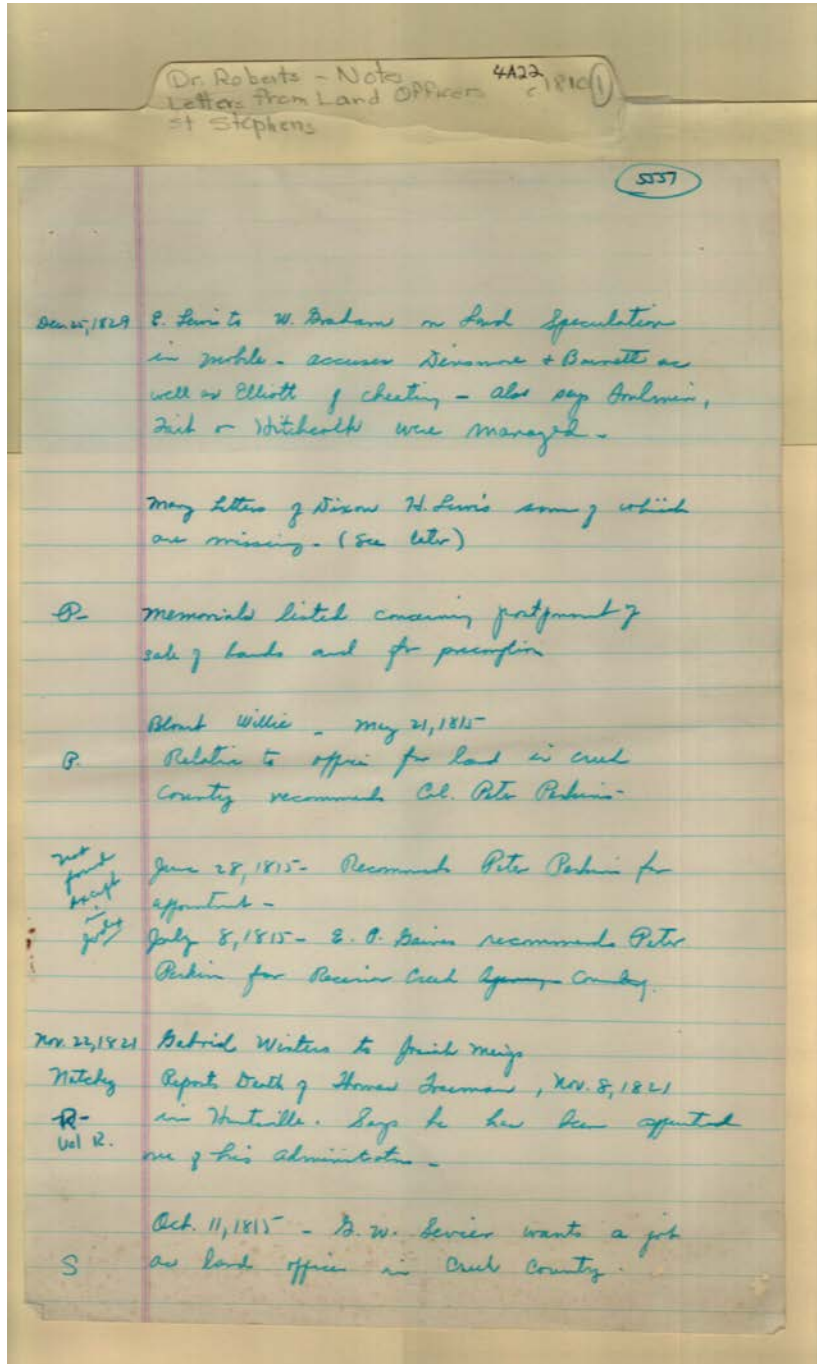 Dr. Roberts - Notes
4A22
c 1810 (1)
Letters from Land Officers
St Stephens
5537
Dec 25, 1829 E. Lewis to W. Graham on Land Speculation
in Mobile - accuses Dinsmore + Barnett as
well as Elliott of cheating - also says
were managed -
Many letters of Dixon H. Lewis some of which
are missing. (See later)
P- Memorials listed concerning postponment of
sale of lands and for preemption
Blount Willie - May 21, 1815
P. Relative to office for land in Creek
County recommends Col. Peter Perkins -
not
found
except
in
June 28, 1815 - Recommends Peter Perkins for
appointment -
July 8, 1815 - E. P. Gaines recommends Peter
Perkin for Receiver Creek Agency County.
Nov. 22, 1821 Gabriel Winters to Josiah Meigs
Natchez Reports Death of Thomas Freeman, Nov. 8, 1821
R- in Huntsville. Says he has been appointed
Vol R. one of his administrators -
Oct. 11, 1815 - G. W. Sevier wants a job
S as land officer in Creek County.